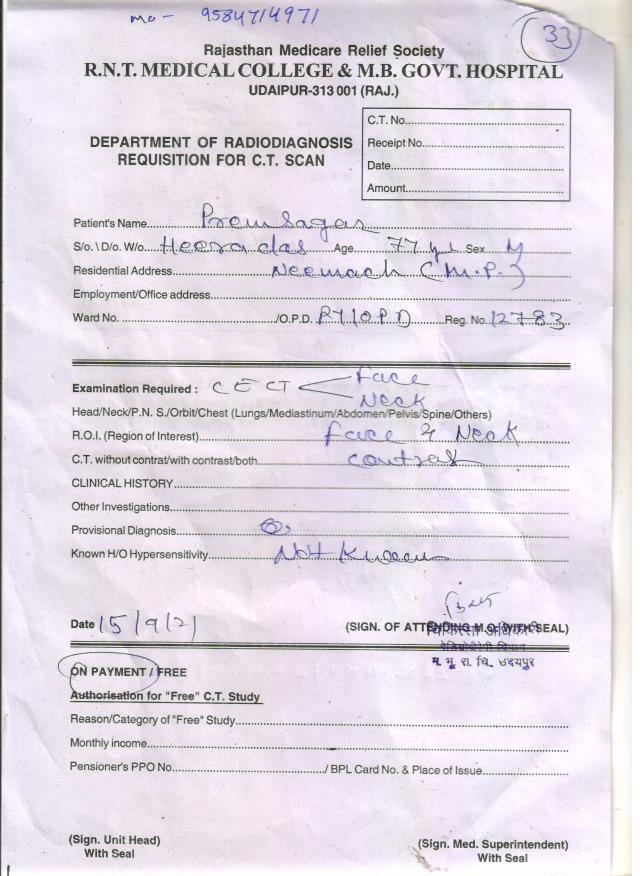 mo- 9584714971
33
Rajasthan Medicare Relief Society
R.N.T. MEDICAL COLLEGE & M.B. GOVT. HOSPITAL
UDAIPUR-313 001 (RAJ.)
DEPARTMENT OF RADIODIAGNOSIS
REQUISITION FOR C.T. SCAN
C.T. No.
Receipt No.
Date
Amount
Patient's Name Premsagar
S/o. \ D/o. W/o. Heera das Age 77 yr Sex M
Residential Address Neemach (M.P.)
Employment/Office address
Ward No. /O.P.D. RT/OPD Reg. No. 12783
Examination Required : CECT Face
Neck
Head/Neck/P.N. S./Orbit/Chest (Lungs/Mediastinum/Abdomen/Pelvis/Spine/Others)
R.O.I. (Region of Interest) face & Neck
C.T. without contrat/with contrast/both contrast
CLINICAL HISTORY
Other Investigations
Provisional Diagnosis
Known H/O Hypersensitivity Not Known
Date 15/9/21 (SIGN. OF ATTENDING M.O. WITH SEAL)
चिकित्सा अधिकारी
म. भू. रा. चि., उदयपुर
ON PAYMENT / FREE
Authorisation for "Free" C.T. Study
Reason/Category of "Free" Study
Monthly income
Pensioner's PPO No. / BPL Card No. & Place of Issue
(Sign. Unit Head) (Sign. Med. Superintendent)
With Seal With Seal